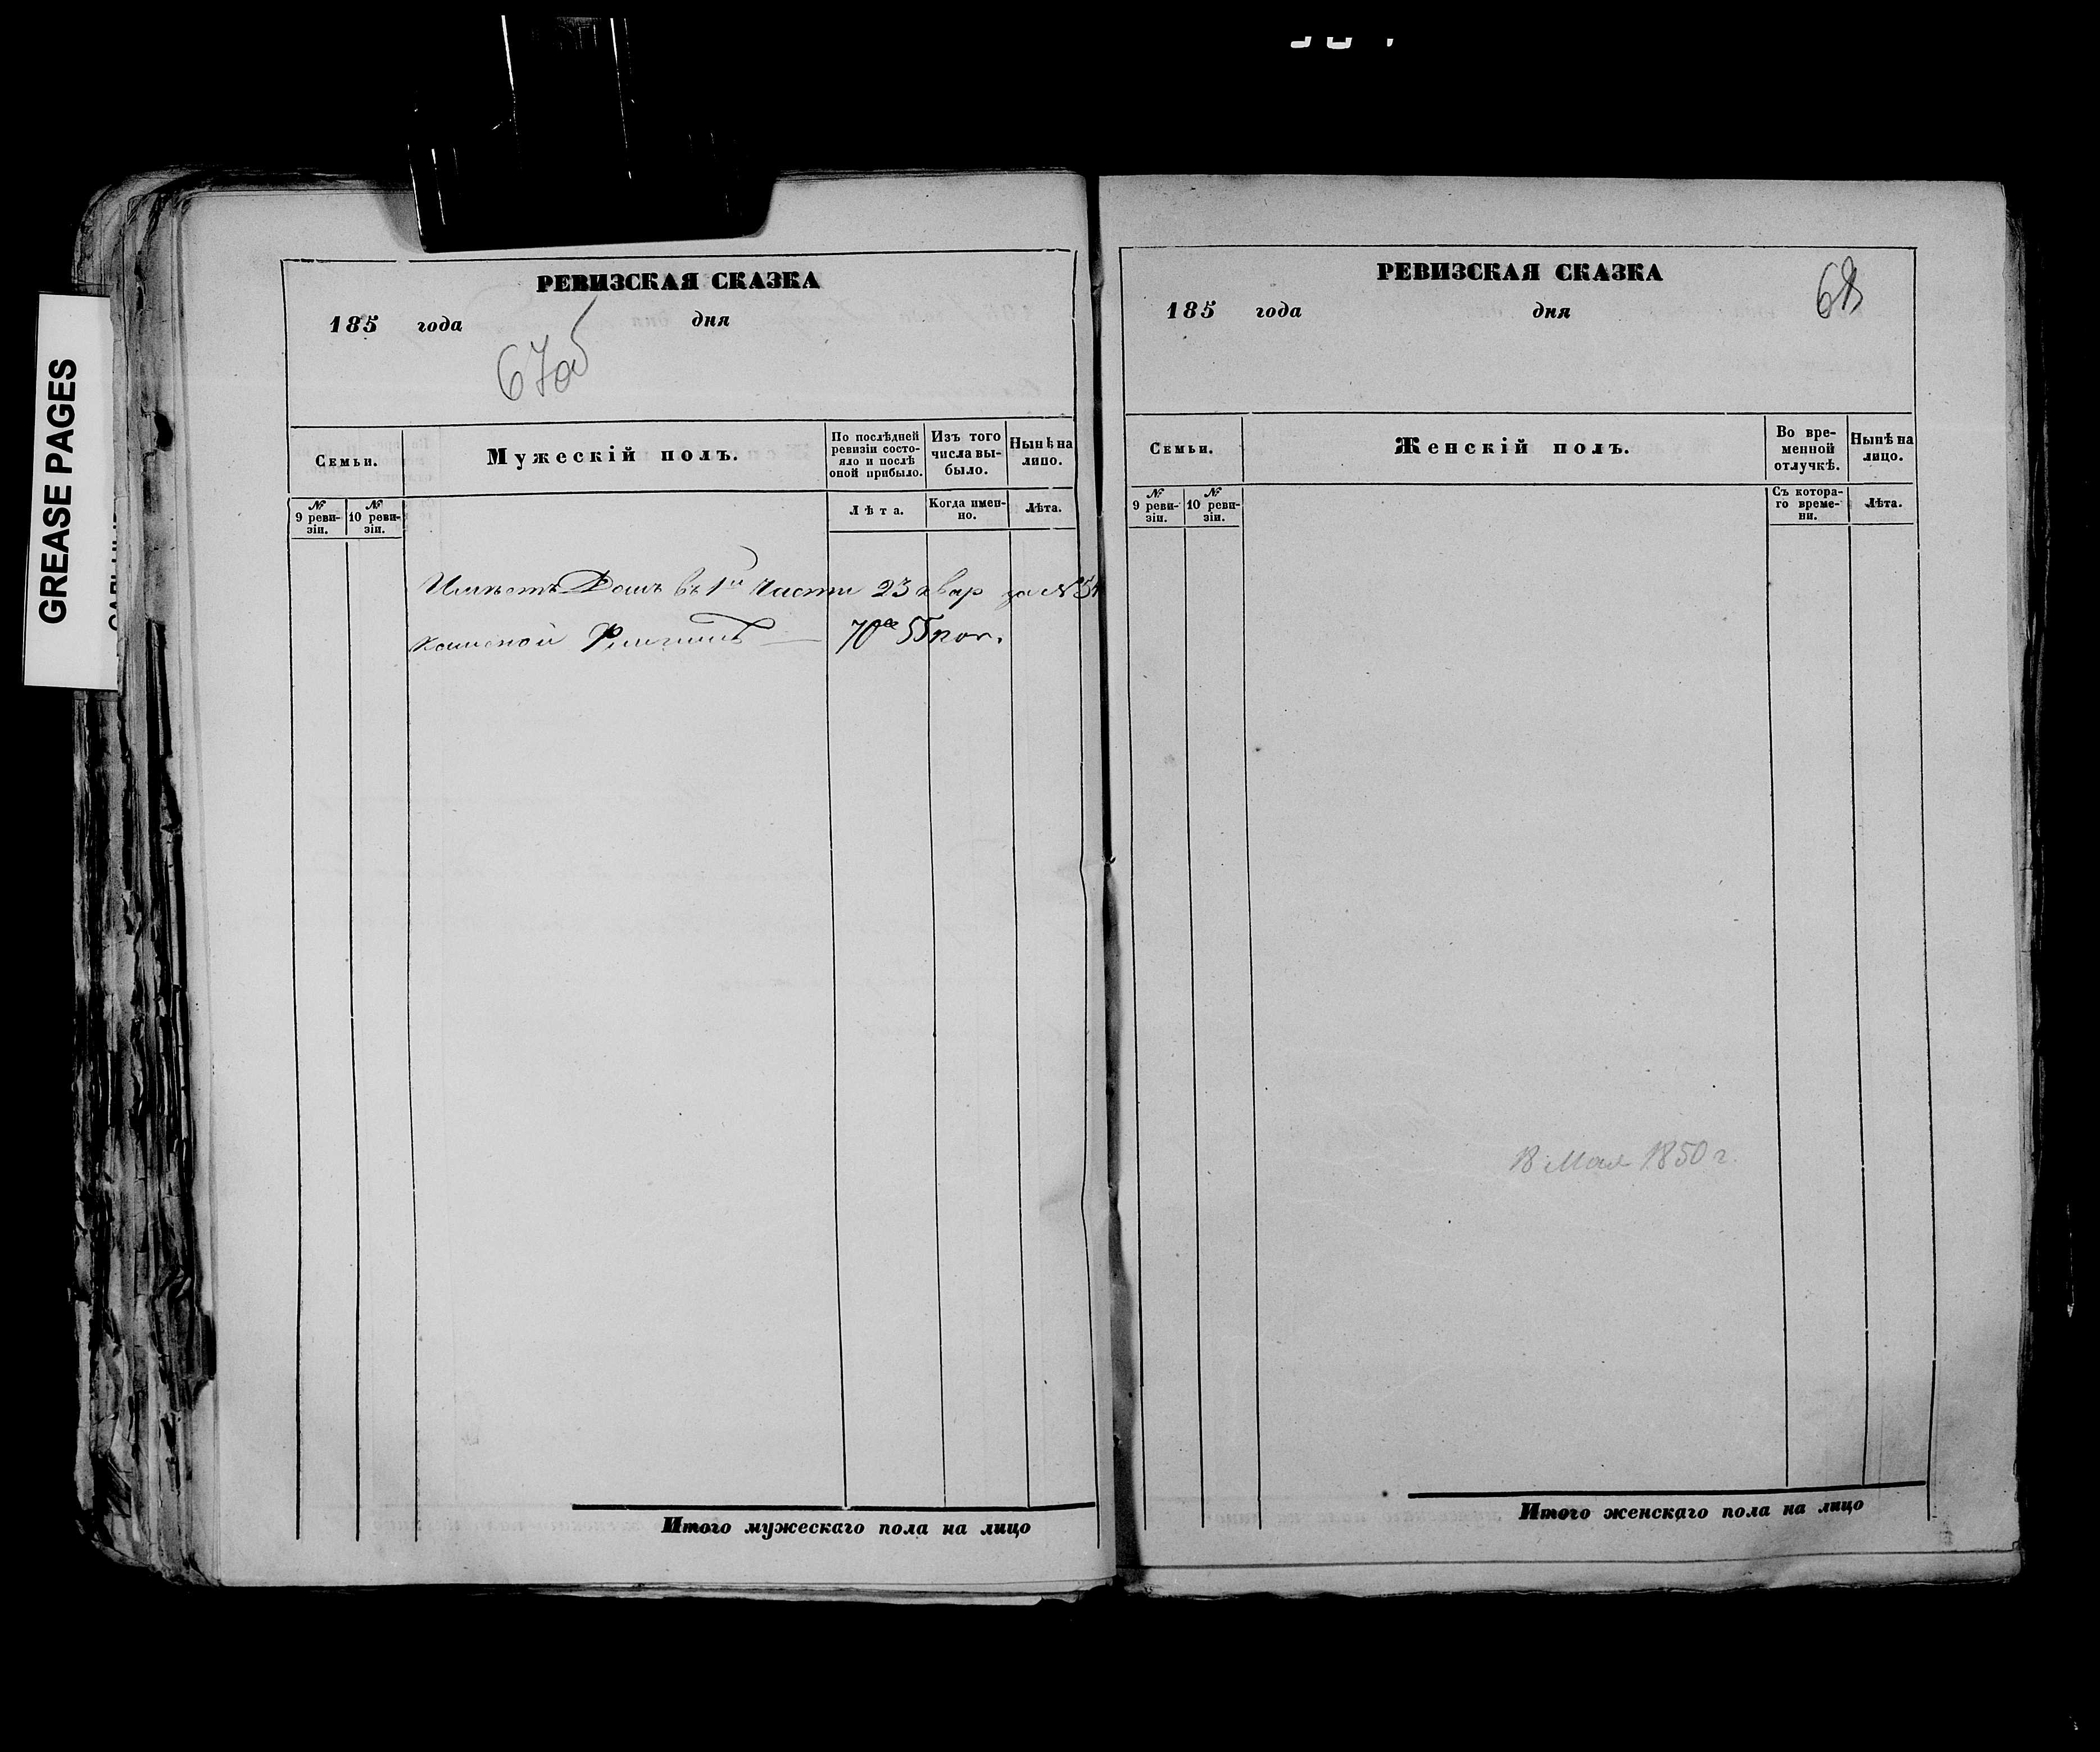 GREASE PAGES
РЕВИЗСКАЯ СКАЗКА
185 года дня
67об
Семьи.
Мужескій полъ.
По послѣдней ревизіи состояло и послѣ оной прибыло.
Изъ того числа выбыло.
Нынѣ на лицо.
№ 9 ревизіи.
№ 10 ревизіи.
Лѣта.
Когда именно.
Лѣта.
Имѣетъ Домъ въ 1й Части 23 квар за №
55 коп.
Итого мужескаго пола на лицо
РЕВИЗСКАЯ СКАЗКА
68
185 года дня
Семьи.
Женскій полъ.
Во временной отлучкѣ.
Нынѣ на лицо.
№ 9 ревизіи.
№ 10 ревизіи.
Съ котораго времени.
Лѣта.
18 Мая 1850 г.
Итого женскаго пола на лицо